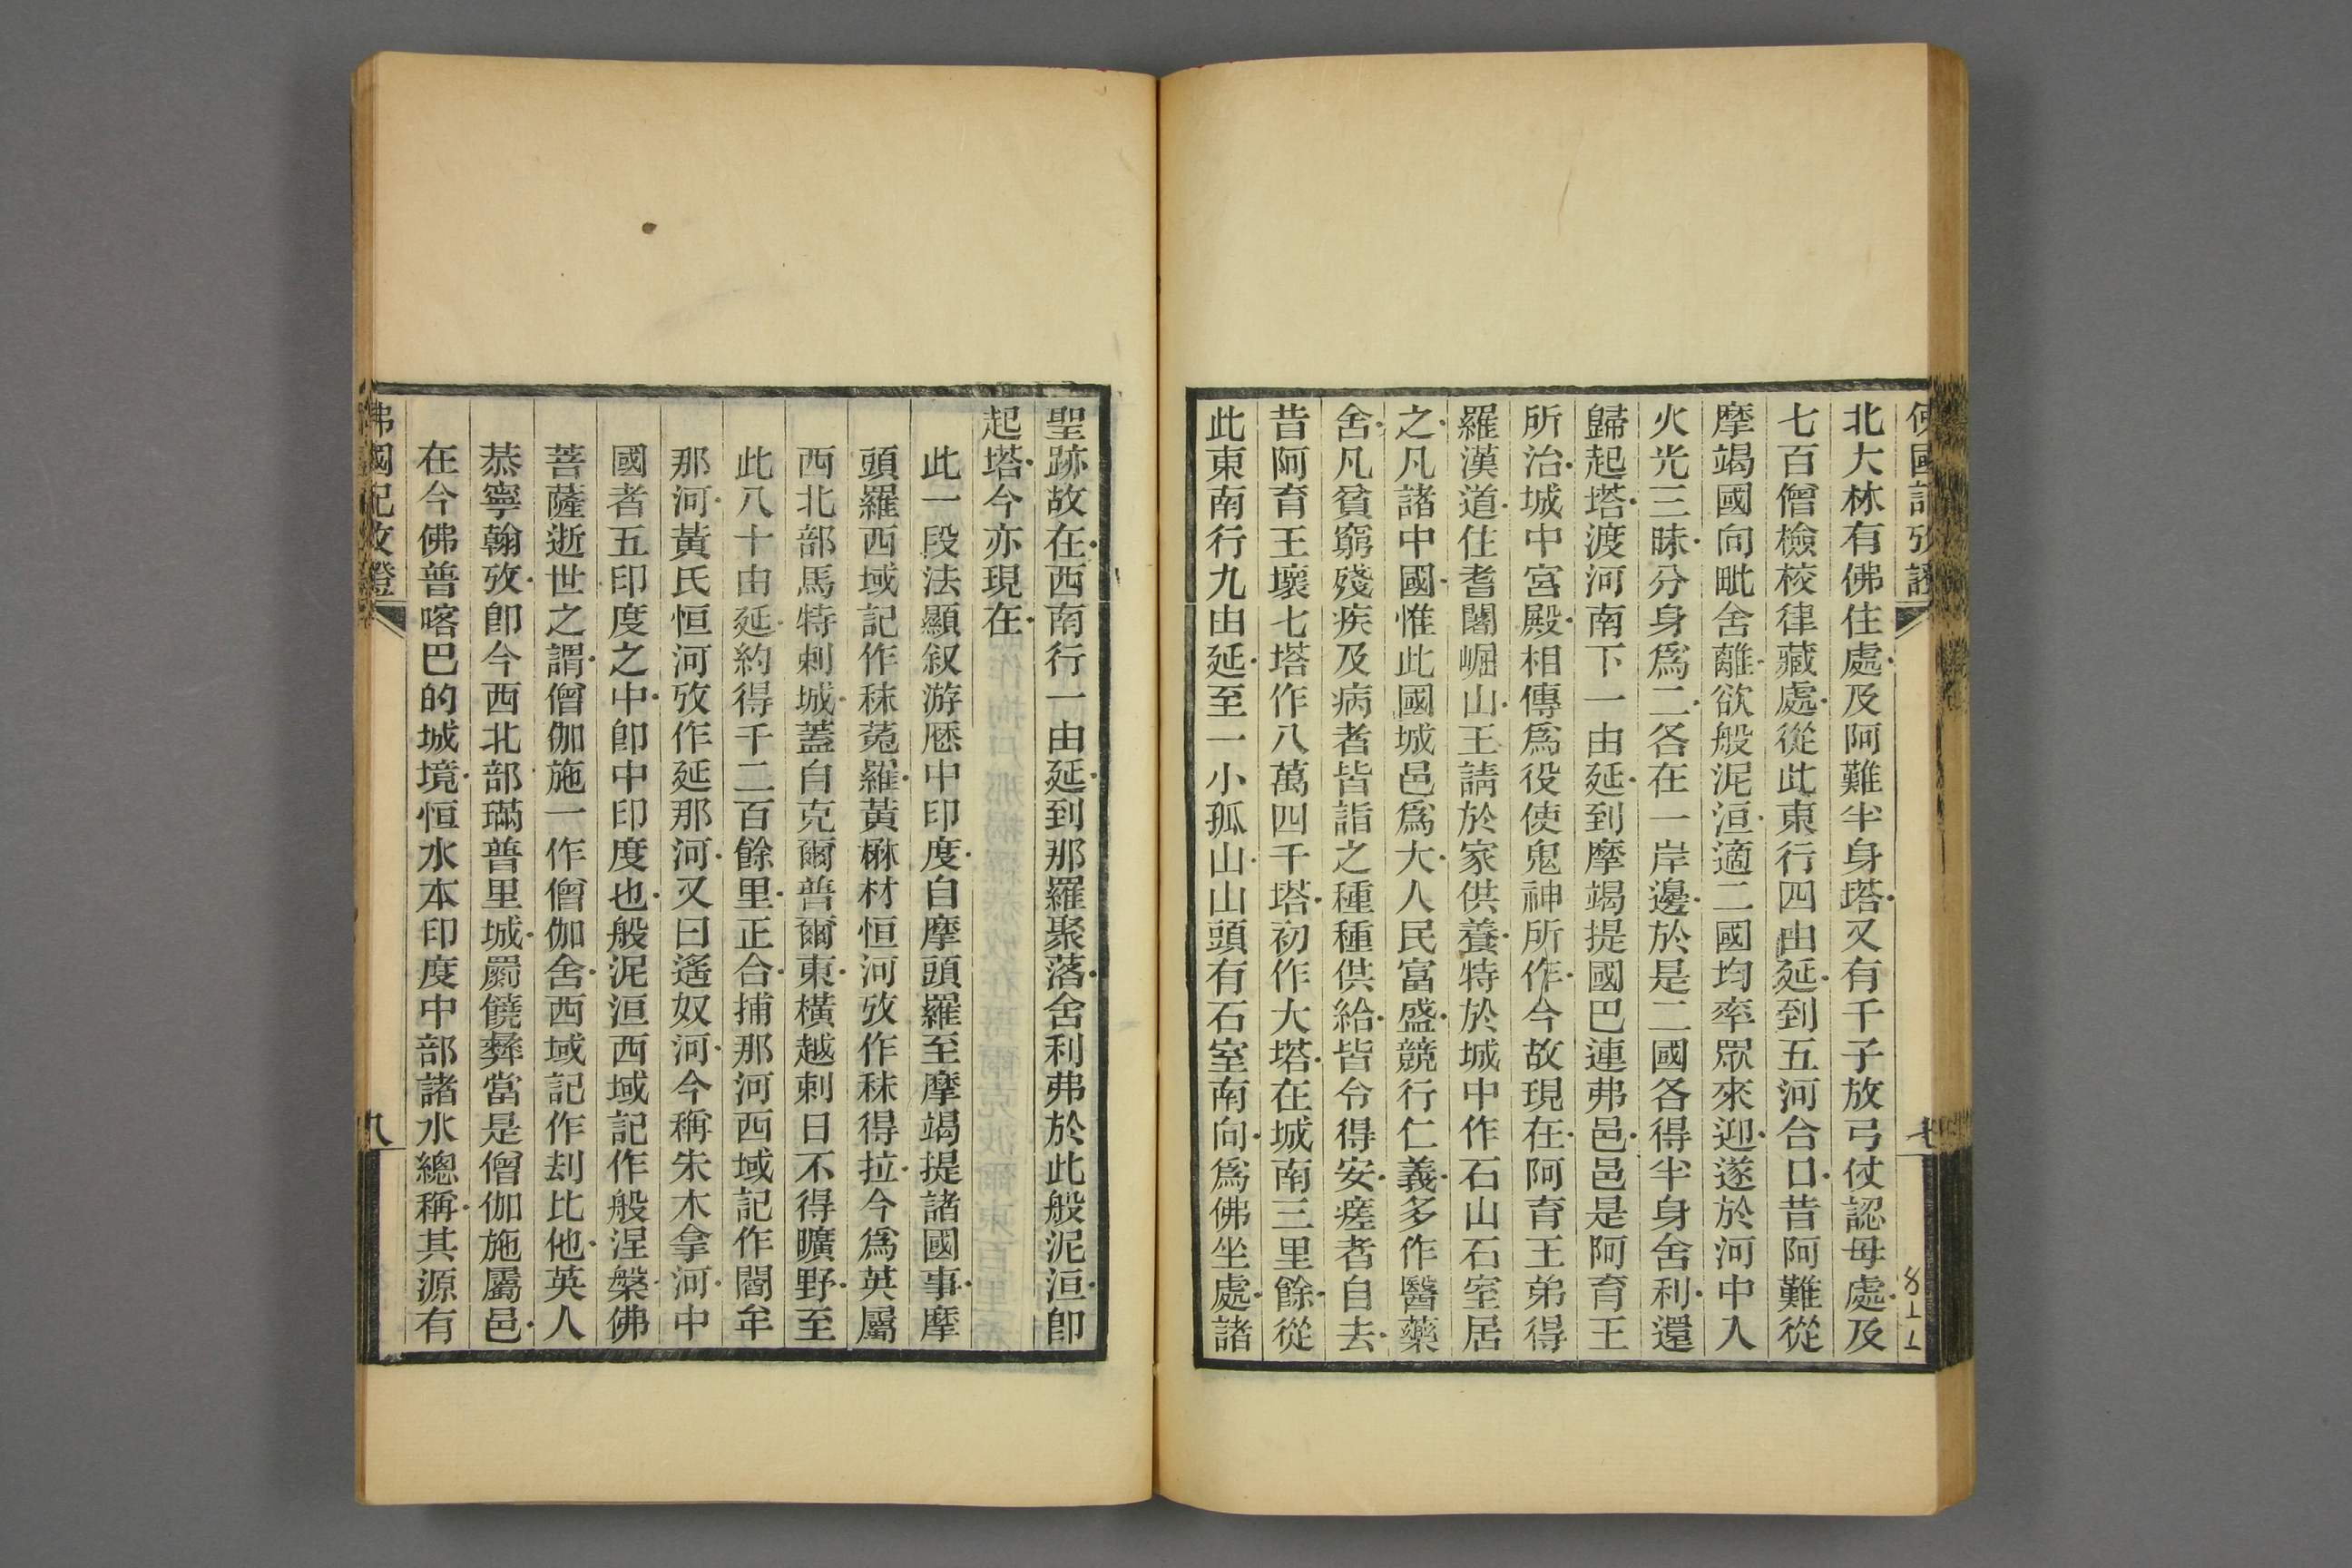 佛國記攷證
北大林有佛住處及阿難半身塔又有千子放弓仗認母處及
七百僧檢校律藏處從此東行四由延到五河合口昔阿難從
摩竭國向毗舍離欲般泥洹適二國均率眾來迎遂於河中入
火光三昧分身爲二各在一岸邊於是二國各得半身舍利還
歸起塔渡河南下一由延到摩竭提國巴連弗邑邑是阿育王
所治城中宮殿相傳爲役使鬼神所作今故現在阿育王弟得
羅漢道住耆闍崛山王請於家供養特於城中作石山石室居
之凡諸中國惟此國城邑爲大人民富盛競行仁義多作醫藥
舍凡貧窮殘疾及病者皆詣之種種供給皆令得安瘥者自去
昔阿育王壞七塔作八萬四千塔初作大塔在城南三里餘從
此東南行九由延至一小孤山山頭有石室南向爲佛坐處諸
聖跡故在西南行一由延到那羅聚落舍利弗於此般泥洹卽
起塔今亦現在
此一段法顯叙游歷中印度自摩頭羅至摩竭提諸國事摩
頭羅西域記作秣菟羅黃楙材恒河攷作秣得拉今爲英屬
西北部馬特剌城蓋自克爾普爾東橫越剌日不得曠野至
此八十由延約得千二百餘里正合捕那河西域記作閻牟
那河黃氏恒河攷作延那河又曰遙奴河今稱朱木拿河中
國者五印度之中卽中印度也般泥洹西域記作般涅槃佛
菩薩逝世之謂僧伽施一作僧伽舍西域記作刦比他英人
恭寧翰攷卽今西北部璊普里城罽饒彝當是僧伽施屬邑
在今佛普喀巴的城境恒水本印度中部諸水總稱其源有
佛國記攷證
九